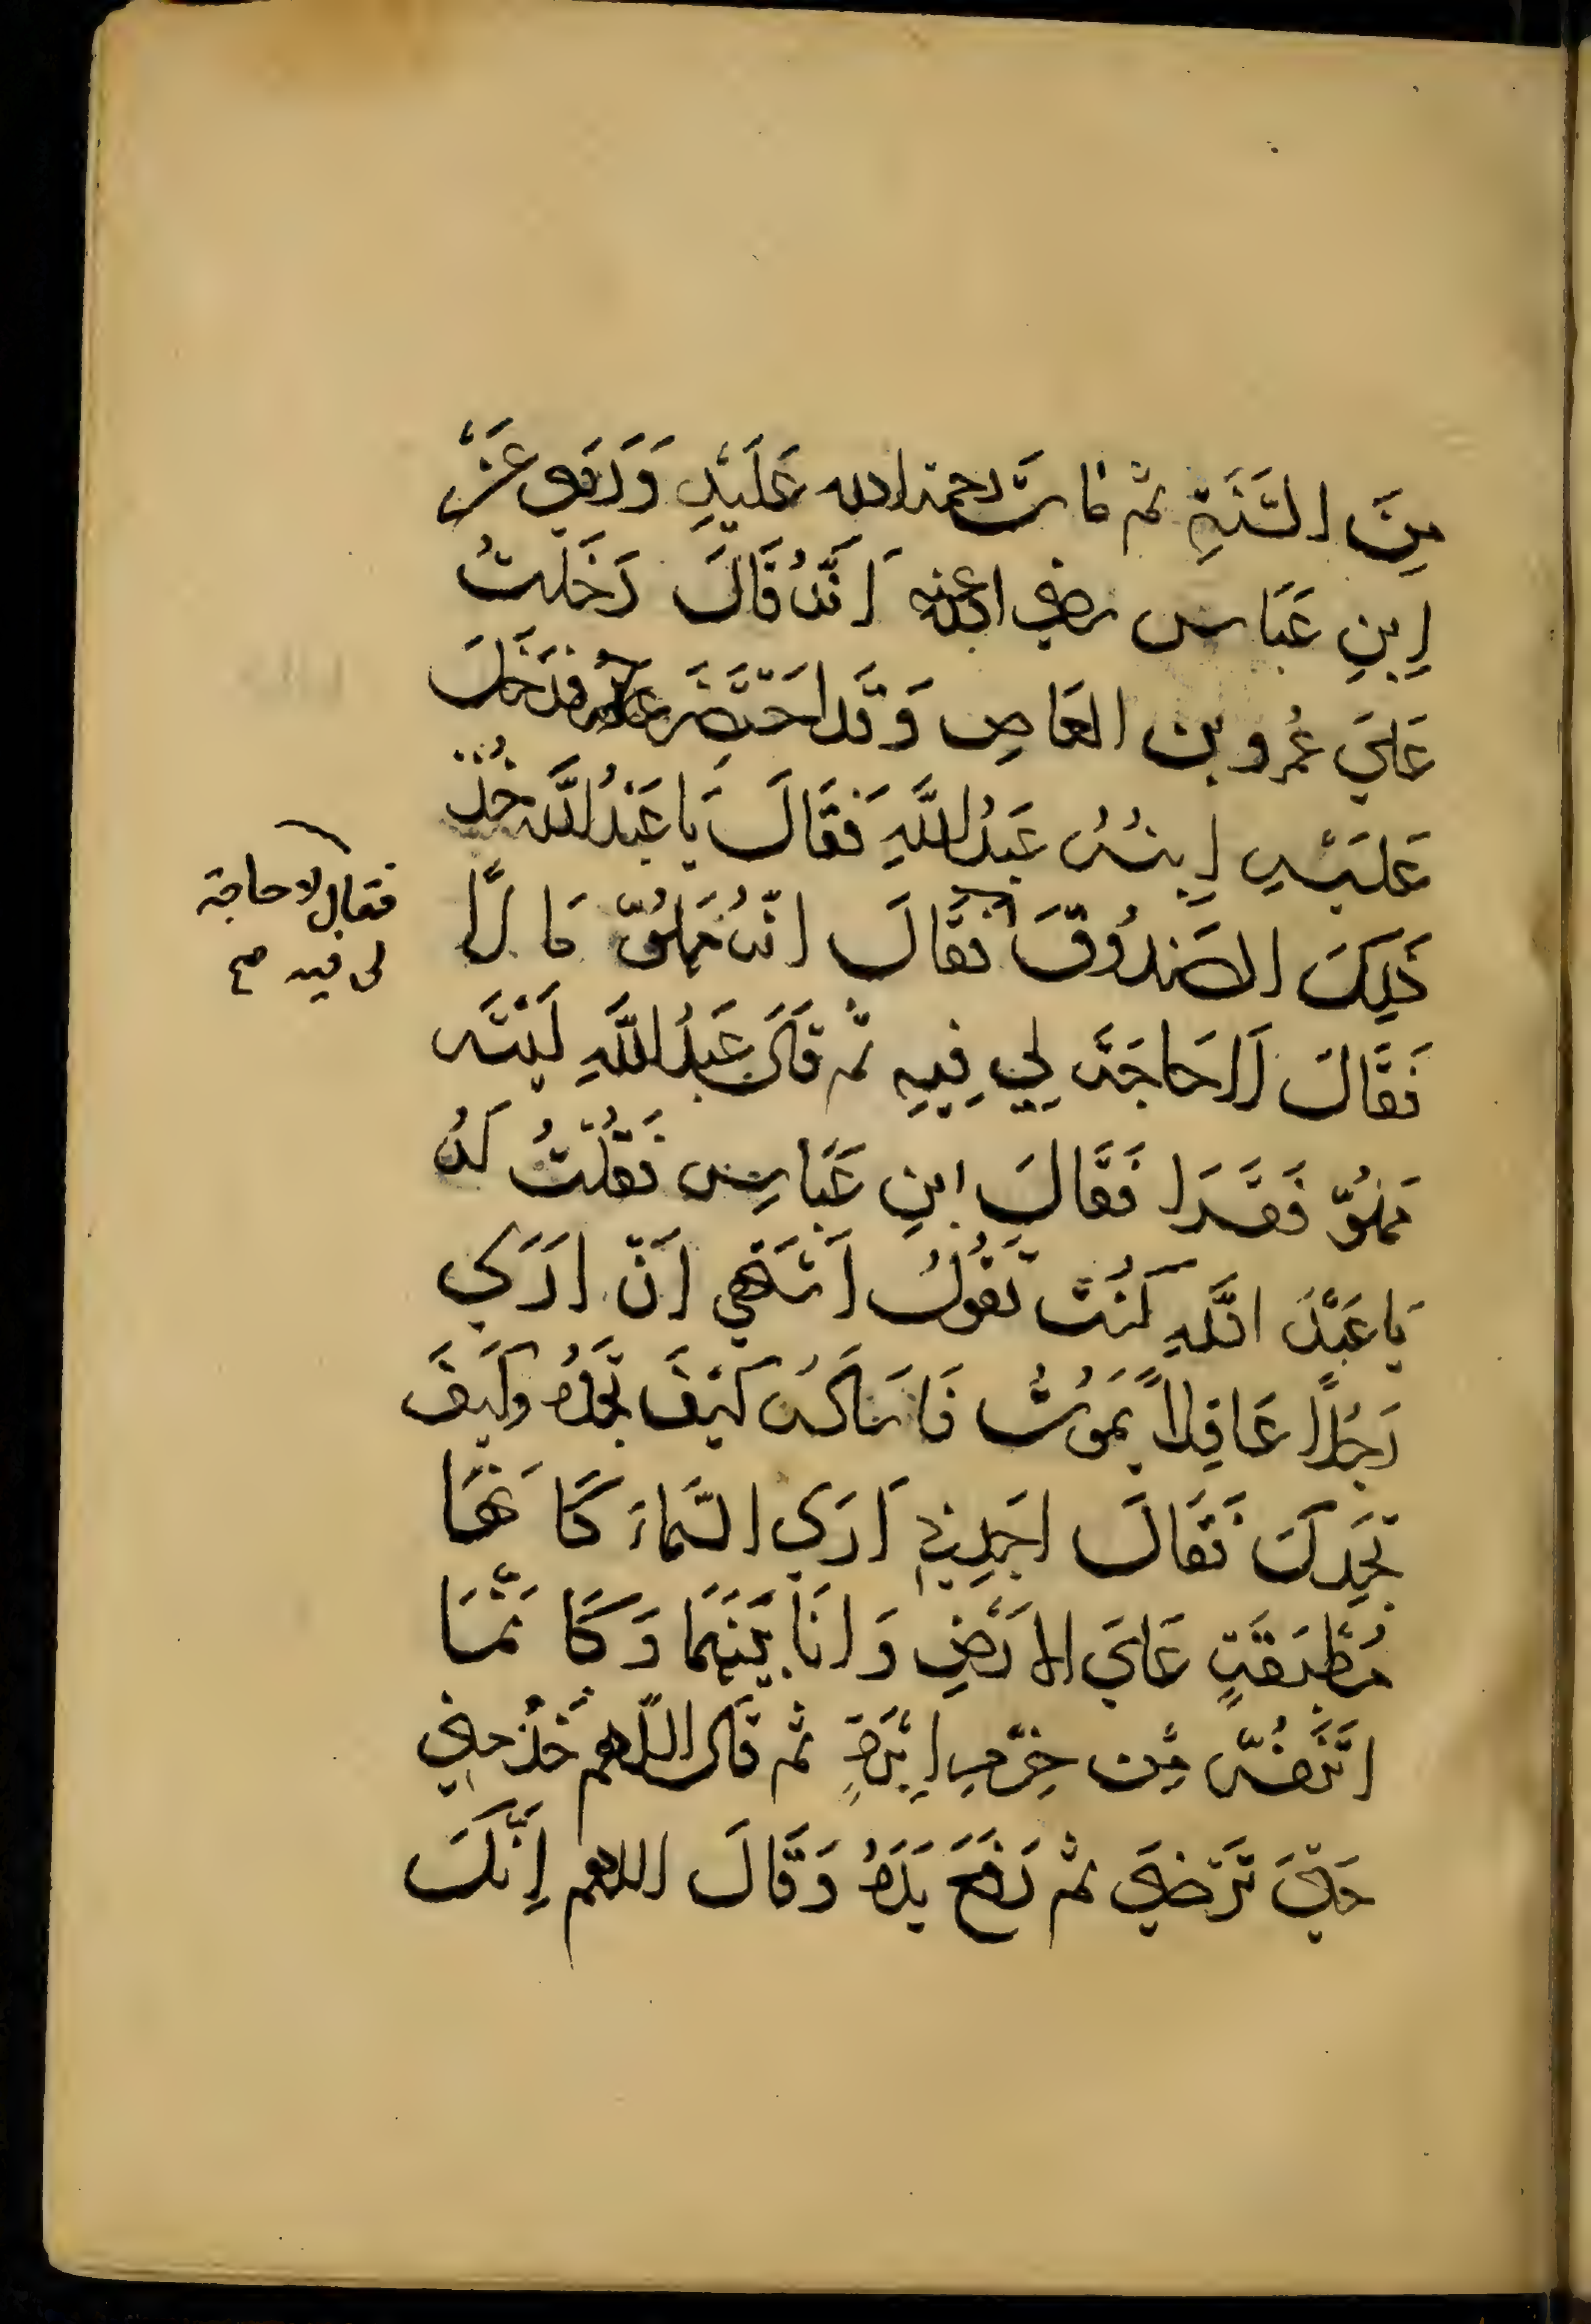 مِنَ السَّنَةِ ثم مات رحمة الله عَلَيْهِ وَرَوي عَنْ
اِبنِ عَبَاس رضي الله عنه اَنَّهُ قَالَ دَخَلتُ
عَلَيَ عُمرو بن العَاصِ وَقَد احَتَضَر فَدَخَلَ
عَليَهِ اِبنُهُ عَبدُ اللَّهِ فَقَالَ يَا عَبدُ اللَّه خُذ
ذَلِكَ الصَندُوقَ فقَالَ انَّهُ مَملُوّ مَا لًا
فَقَالَ لَا حَاجَة لِي فِيهِ ثم قَالَ عَبدُ اللَّهِ لَيتَه
مَملُوّ فَقرَا فَقَالَ ابنِ عَبَاسِ فَقُلتُ لَهُ
يَا عَبدَ اللَّهِ كُنت تَقُولُ اَشتَهي اَنّ اَرَي
رَجُلًا عَاقِلاً يَمَوُتُ فَاسَالَهُ كَيَفَ تَجَدهُ وكَيَفَ
تَجِدكَ فَقَالَ اجَدِني اَرَي السَّمَاءَ كَا نَهَا
مُطبَقَةٍ عَلَيَ الارَضِ وَانَا بَينَهَمَا وَكَا نَّمَا
اتَنَفسّ مِن خرم اِبَرةٍ ثم قَال اللّهم خُذ مِني
حَتيَ تَرضيَ ثم رَفَعَ يَدهُ وَقَالَ اللهم اِنَّكَ
فقال لا حاجة
لى فيه صح